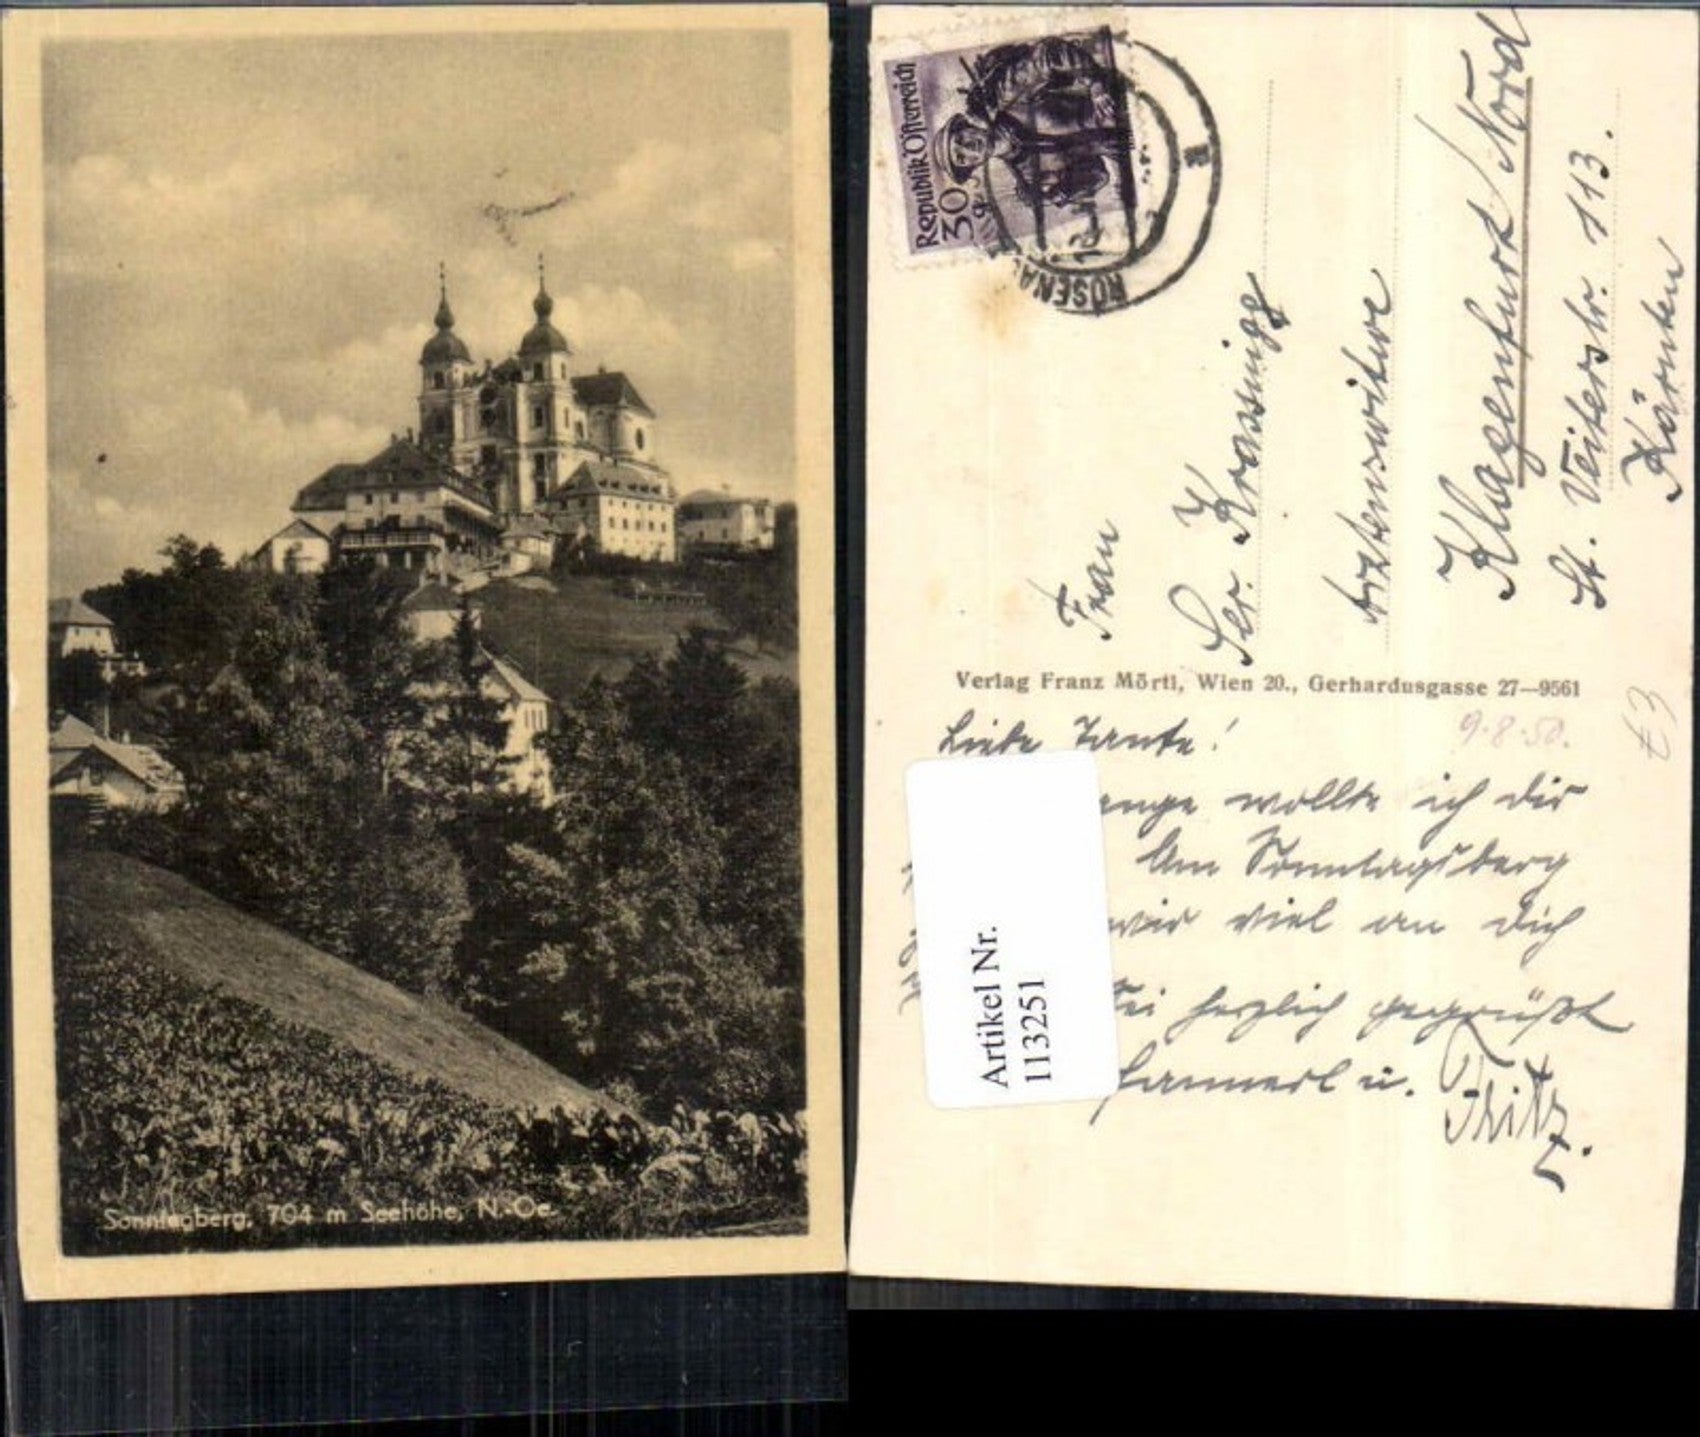 Sonntagberg, 704 m Seehöhe, N.-Oe.
Republik Österreich
30 g
ROSENA
Frau
Krassnigg
Arztenswitwe
Klagenfurt / Nord
St. Veiterstr. 113.
Kärnten
Verlag Franz Mörtl, Wien 20., Gerhardusgasse 27—9561
9.8.50.
€3
Liebe Tante!
ange wollte ich dir
Am Sonntagsberg
wir viel an dich
Sei herzlich gegrüßt
Hannerl u. Fritz.
Artikel Nr.
113251